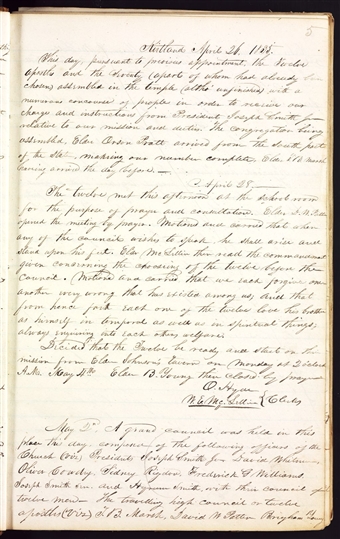 5
Kirtland April 26, 1835.
This day, pursuant to previous appointment, the twelve
apostles and the seventy (a part of whom had already been
chosen) assembled in the temple (altho' unfinished) with a
numerous concourse of people in order to receive our
charge and instructions from President Joseph Smith Jun.
relative to our mission and duties. The congregation being
assembled, Elder Orson Pratt arrived from the south part
of the State, making our number complete, Elder T B Marsh
having arrived the day before.
April 28,
The twelve met this afternoon at the school room
for the purpose of prayer and consultation. Elder D. W. Patten
opened the meeting by prayer. Motioned and carried that when
any of the council wishes to speak he shall arise and
stand upon his feet. Elder McLellin then read the commandment
given concerning the choosing of the twelve before the
council. Motioned and carried that we each forgive one
another every wrong that has existed among us, and that
from hence forth each one of the twelve love his brother
as himself in temporal as well as in spiritual things;
always enquiring into each others welfare.
Decided that the twelve be ready and start on their
mission from Elder Johnson's tavern on Monday at 2 o'clock
A.M. May 4th Elder B. Young then closed by prayer
O. Hyde
W. E. Mc.Lellin } Clerks
May 2d A grand council was held in this
place this day, composed of the following officers of the
Church (viz) President Joseph Smith Jun David Whitmer
Oliver Cowdry, Sidney Rigdon Frederick G Williams,
Joseph Smith sen. and Hyrum Smith with their council of
twelve men— The travelling high council or twelve
apostles (viz) T. B. Marsh, David W Patten Brigham Young